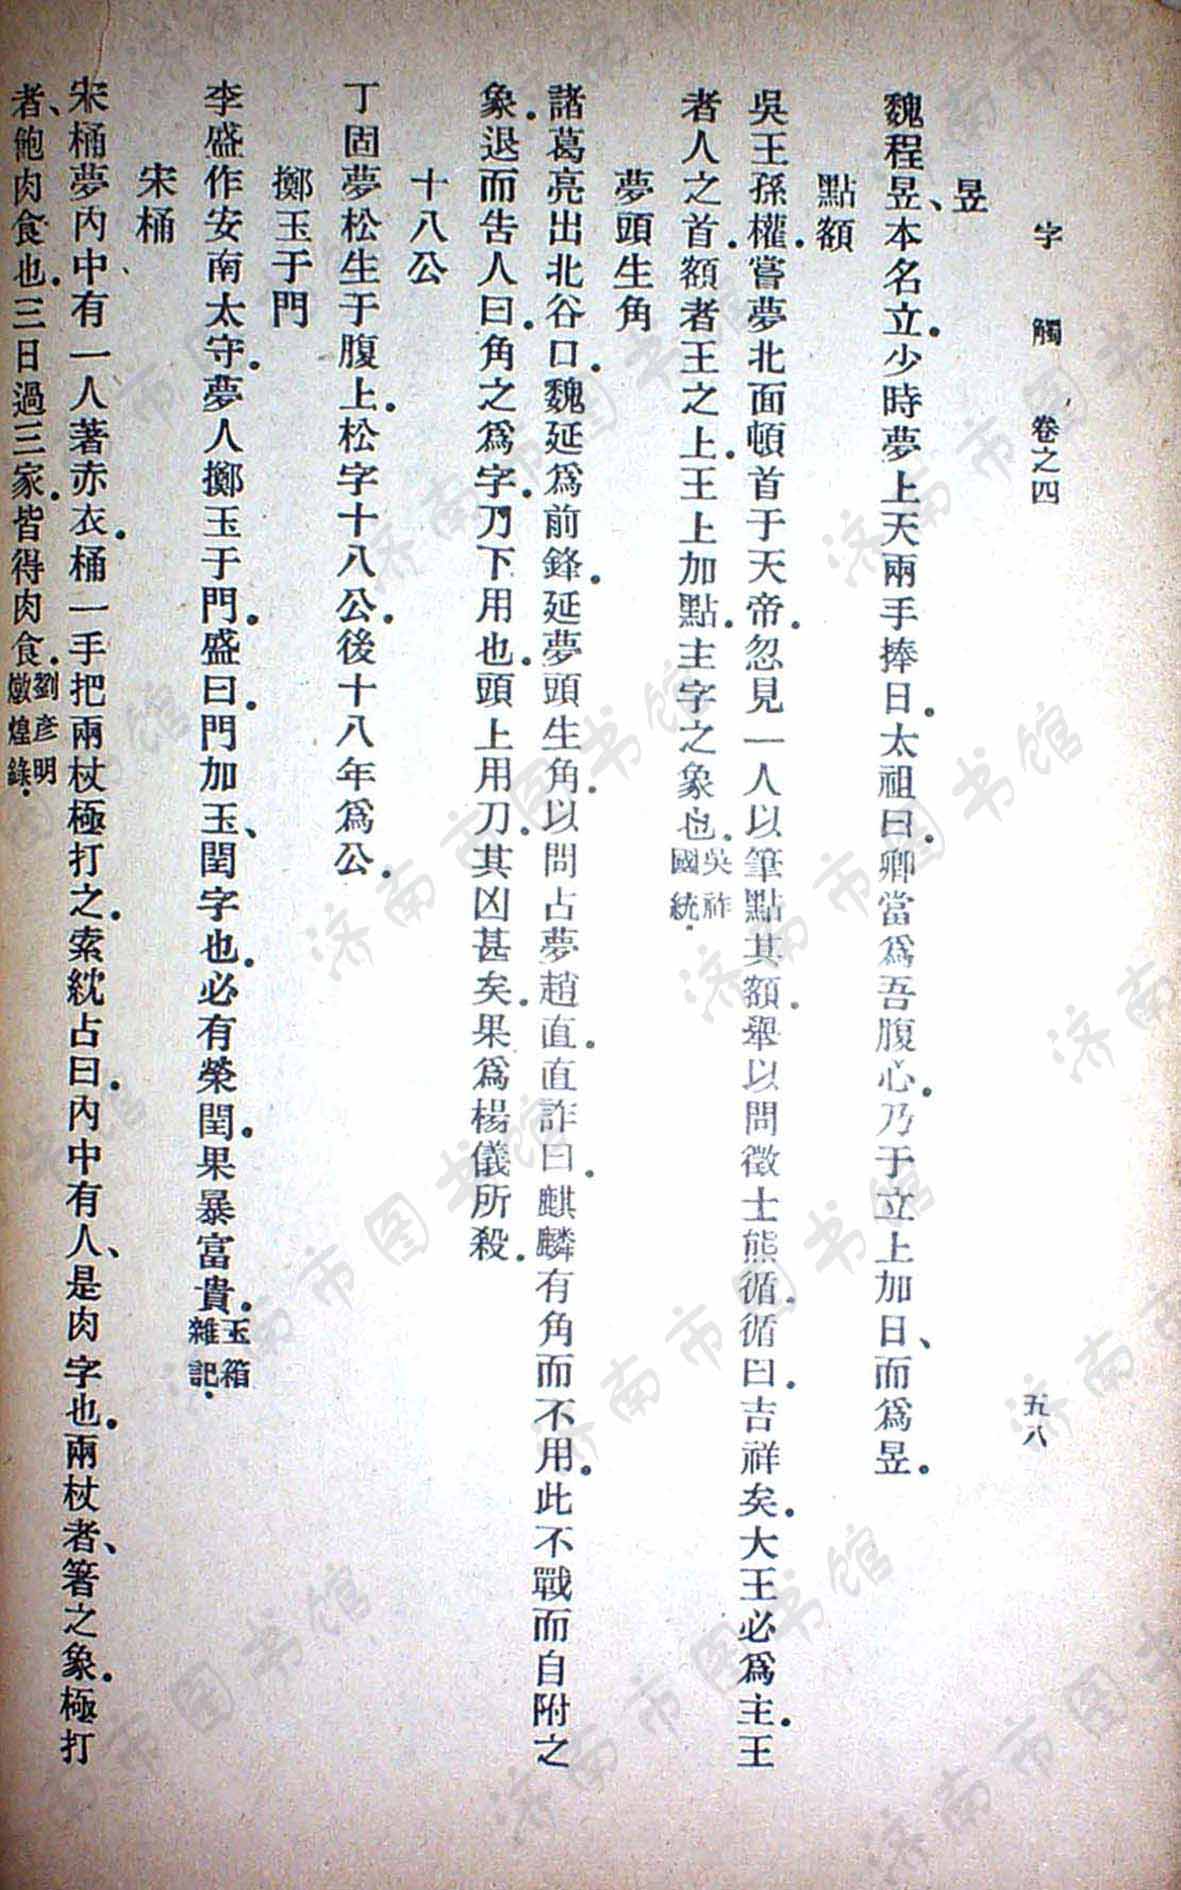 字觸 卷之四 五八
昱
魏程昱、本名立。少時夢上天兩手捧日。太祖曰。卿當爲吾腹心。乃于立上加日、而爲昱。
點額
吳王孫權。嘗夢北面頓首于天帝。忽見一人以筆點其額。舉以問徵士熊循。循曰。吉祥矣。大王必爲主。王
者人之首。額者王之上。王上加點。主字之象也。吳祚國統。
夢頭生角
諸葛亮出北谷口。魏延爲前鋒。延夢頭生角。以問占夢趙直。直詐曰。麒麟有角而不用。此不戰而自附之
象。退而告人曰。角之爲字。刀下用也。頭上用刀。其凶甚矣。果爲楊儀所殺。
十八公
丁固夢松生于腹上。松字十八公。後十八年爲公。
擲玉于門
李盛作安南太守。夢人擲玉于門。盛曰。門加玉、閏字也。必有榮閏。果暴富貴。玉箱雜記。
宋桶
宋桶夢內中有一人著赤衣。桶一手把兩杖極打之。索紞占曰。內中有人、是肉字也。兩杖者、箸之象。極打
者、飽肉食也。三日過三家。皆得肉食。劉彥明燉煌錄。
济南市图书馆